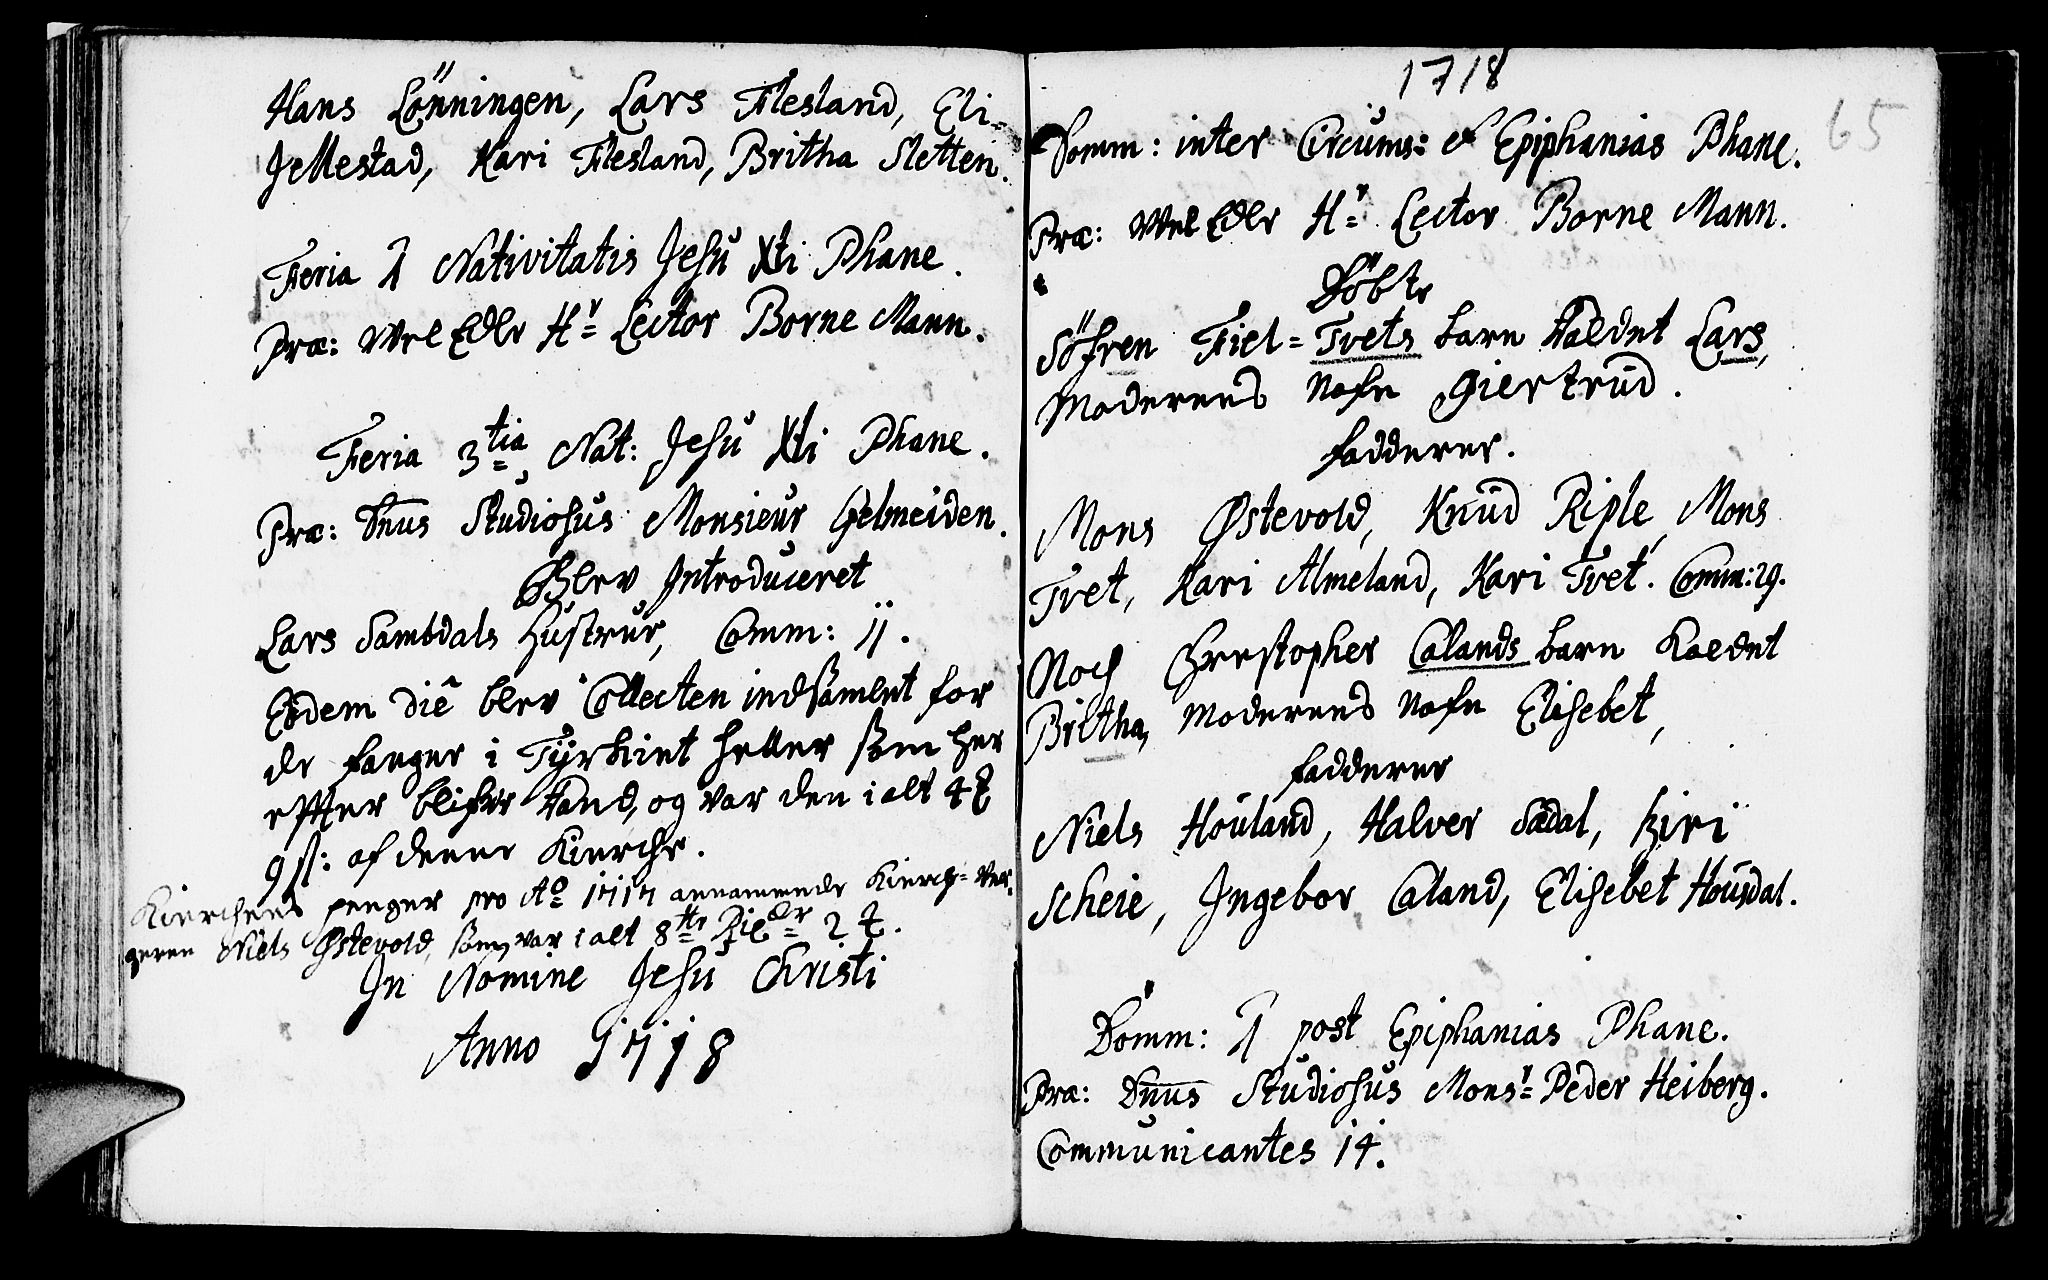 Hans Lönningen, Lars Flesland, Eli-
Jellestad, Kari Flesland, Britha Sletten.
Feria 1 Nativitatis Jesu Xti Phane.
Præ: Wel Edle Hr Lector Borne Mann.
Feria 3tia Nat: Jesu Xti Phane.
Præ: Dnus Studiosus Monsieur Gelmeiden.
Blev Introduceret
Lars Sambdals Hustrue, Comm: 11.
Eodem die blev Collecten indsamlet for
de fanger i Tyrkiet heller som her
efter blifver tand, og var den i alt 4 ꝶ
9 ſl: af denne Kierche.
Kierchens penger pro Ao 1717 annammede Kierche-Ver-
geren Niels Østevold, som var i alt 8tte Rixdlr 2 ꝶ.
In Nomine Jesu Christi
Anno 1718
1718
65
Domm: inter Circums: & Epiphanias Phane.
Præ: Wel Edle Hr Lector Borne Mann.
Döbte
Söfren Fiel-Tvets barn kaldet Lars,
Moderens Nafn Giertrud.
fadderer.
Mons Østevold, Knud Riple, Mons
Tvet, Kari Almeland, Kari Tvet. Comm: 29.
Noch Christopher Calands barn kaldet
Britha, Moderens Nafn Elisebet,
fadderer
Niels Houland, Halver Sædal, Siri
Scheie, Ingebor Caland, Elisebet Housdal.
Domm: 1 post Epiphanias Phane.
Præ: Dnus Studiosus Monsr Peder Heiberg.
Communicantes 14.